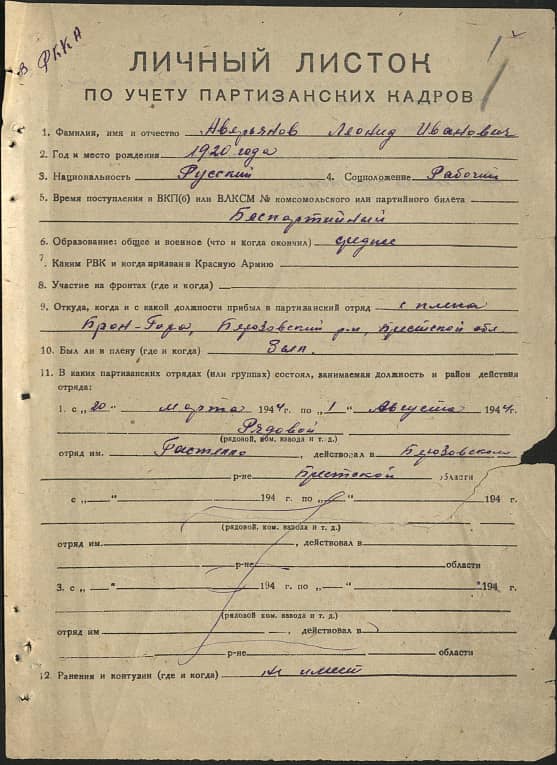 в РККА
ЛИЧНЫЙ ЛИСТОК
ПО УЧЕТУ ПАРТИЗАНСКИХ КАДРОВ
1. Фамилия, имя и отчество Аверьянов Леонид Иванович
2. Год и место рождения 1920 года
3. Национальность Русский 4. Соцположение Рабочий
5. Время поступления в ВКП(б) или ВЛКСМ № комсомольского или партийного билета
Беспартийный
6. Образование: общее и военное (что и когда окончил) среднее
7. Каким РВК и когда призван в Красную Армию
8. Участие на фронтах (где и когда)
9. Откуда, когда и с какой должности прибыл в партизанский отряд с плена
Брон-Гора, Березовский р-н, Брестской обл
10. Был ли в плену (где и когда)
11. В каких партизанских отрядах (или группах) состоял, занимаемая должность и район действия
отряда:
1. с „20" марта 1944 г. по „1" Августа 1944 г.
Рядовой
(рядовой, ком. взвода и т. д.)
отряд им. Гастелло, действовал в Березовском
р-не Брестской области
с „ " 194 г. по „ " 194 г.
(рядовой, ком. взвода и т. д.)
отряд им. , действовал в
р-не области
3. с „ " 194 г. по „ " 194 г.
(рядовой, ком. взвода и т. д.)
отряд им , действовал в
р-не области
12. Ранения и контузии (где и когда) не имеет